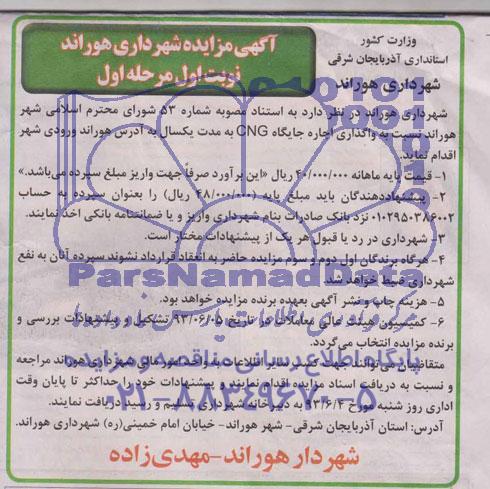 وزارت کشور
استانداری آذربایجان شرقی
شهرداری هوراند
آگهی مزایده شهرداری هوراند
نوبت اول مرحله اول
شهرداری هوراند در نظر دارد به استناد مصوبه شماره ۵۳ شورای محترم اسلامی شهر
هوراند نسبت به واگذاری اجاره جایگاه CNG به مدت یکسال به آدرس هوراند ورودی شهر
اقدام نماید.
۱- قیمت پایه ماهانه ۴۰/۰۰۰/۰۰۰ ریال «این برآورد صرفاً جهت واریز مبلغ سپرده می‌باشد.»
۲- پیشنهاددهندگان باید مبلغ پایه (۴۸/۰۰۰/۰۰۰ ریال) را بعنوان سپرده به حساب
۰۱۰۲۹۵۰۳۸۶۰۰۲ نزد بانک صادرات بنام شهرداری واریز و یا ضمانتنامه بانکی اخذ نمایند.
۳- شهرداری در رد یا قبول هر یک از پیشنهادات مختار است.
۴- هرگاه برندگان اول دوم و سوم مزایده حاضر به انعقاد قرارداد نشوند سپرده آنان به نفع
شهرداری ضبط خواهد شد.
۵- هزینه چاپ و نشر آگهی بعهده برنده مزایده خواهد بود.
۶- کمیسیون هیئت عالی معاملات در تاریخ ۹۳/۰۶/۰۵ تشکیل و پیشنهادات بررسی و
برنده مزایده انتخاب می‌گردد.
متقاضیان می‌توانند جهت کسب سایر اطلاعات به واحد امور مالی شهرداری هوراند مراجعه
و نسبت به دریافت اسناد مزایده اقدام نمایند و پیشنهادات خود را حداکثر تا پایان وقت
اداری روز شنبه مورخ ۹۳/۶/۴ به دبیرخانه شهرداری تسلیم و رسید دریافت نمایند.
آدرس: استان آذربایجان شرقی- شهر هوراند- خیابان امام خمینی(ره) شهرداری هوراند.
شهردار هوراند-مهدی‌زاده
ParsNamadData
پایگاه اطلاع رسانی مناقصه و مزایده
۰۲۱-۸۸۳۴۹۶۷۰-۵